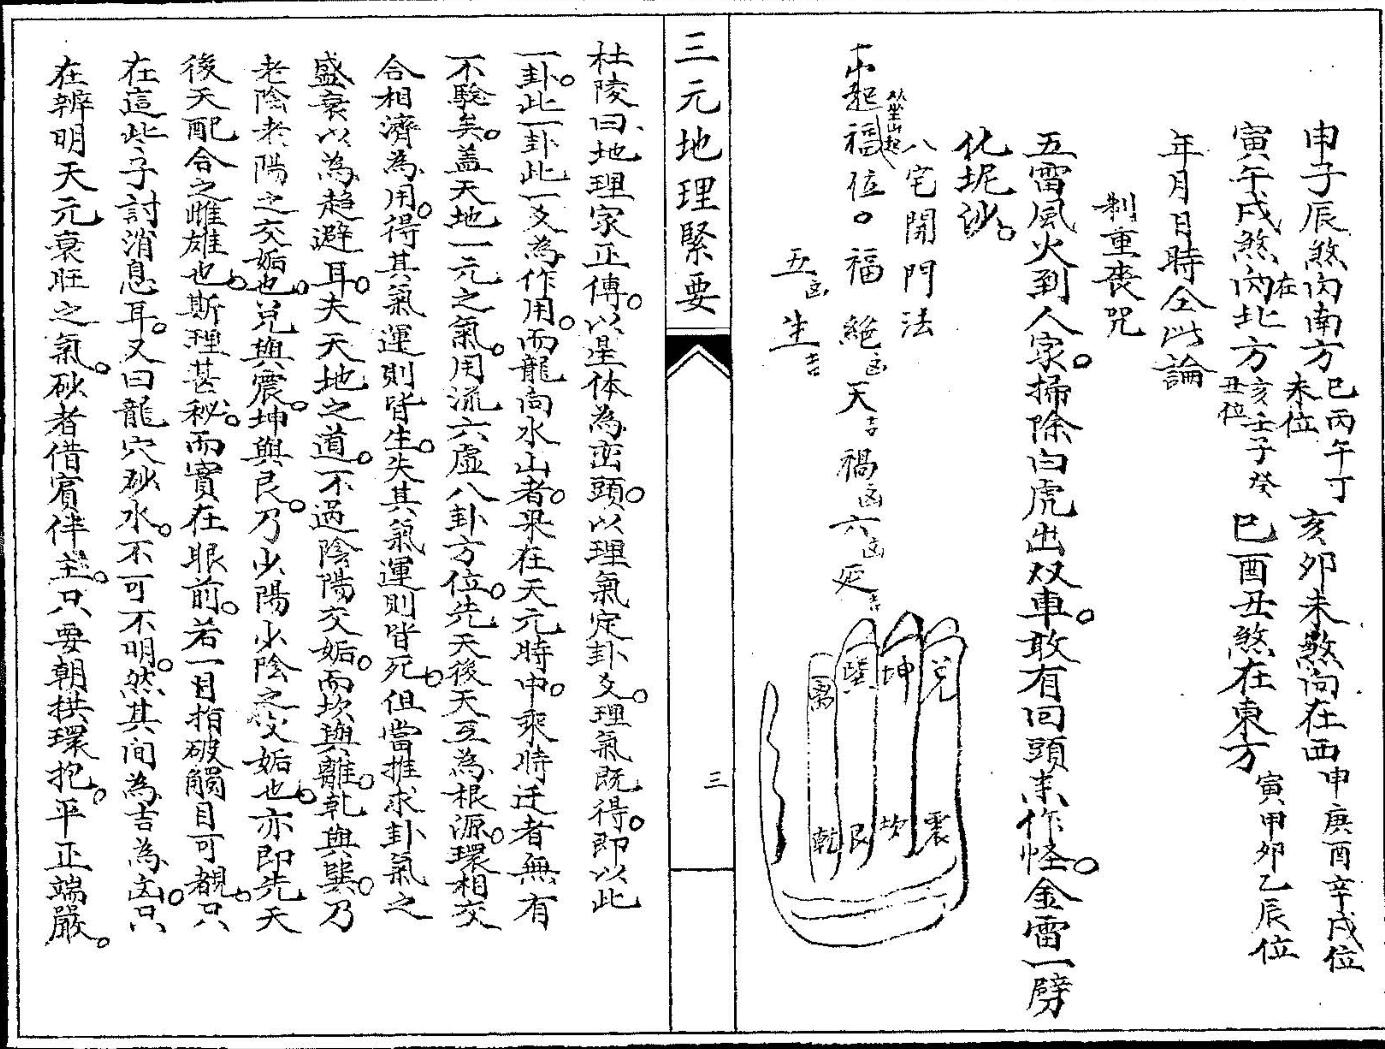 申子辰煞向南方巳丙午丁未位
亥卯未煞向在西申庚酉辛戌位
寅午戌煞在北方亥壬子癸丑位
巳酉丑煞在東方寅甲卯乙辰位
年月日時仝此論
制重喪咒
五雷風火到人家。掃除白虎出双車。敢有回頭来作怪。金雷一劈
化坭沙。
八宅開門法
從坐山起
起福位。福絶凶天吉禍凶六凶延吉
五凶生吉
兌
坤
巽
离
震
坎
艮
乾
三元地理緊要
三
杜陵曰、地理家正傳。以星体為峦頭。以理氣定卦爻。理氣既得。即以此
一卦。此一卦此一爻為作用。而龍向水山者。果在天元時中。乘時迁者無有
不驗矣。蓋天地一元之氣。用流六虛八卦方位。先天後天互為根源。環相交
合相濟為用。得其氣運則皆生。失其氣運則皆死。但當推求卦氣之
盛衰以為趋避耳。夫天地之道。不過陰陽交姤。而坎與離。乾與巽。乃
老陰老陽之交姤也。兌與震。坤與艮。乃少陽少陰之交姤也。亦即先天
後天配合之雌雄也。斯理甚秘。而實在眼前。若一目指破觸目可覩。只
在這些子討消息耳。又曰龍穴砂水。不可不明。然其间為吉為凶。只
在辨明天元衰旺之氣。砂者借賓伴主。只要朝拱環抱。平正端嚴。